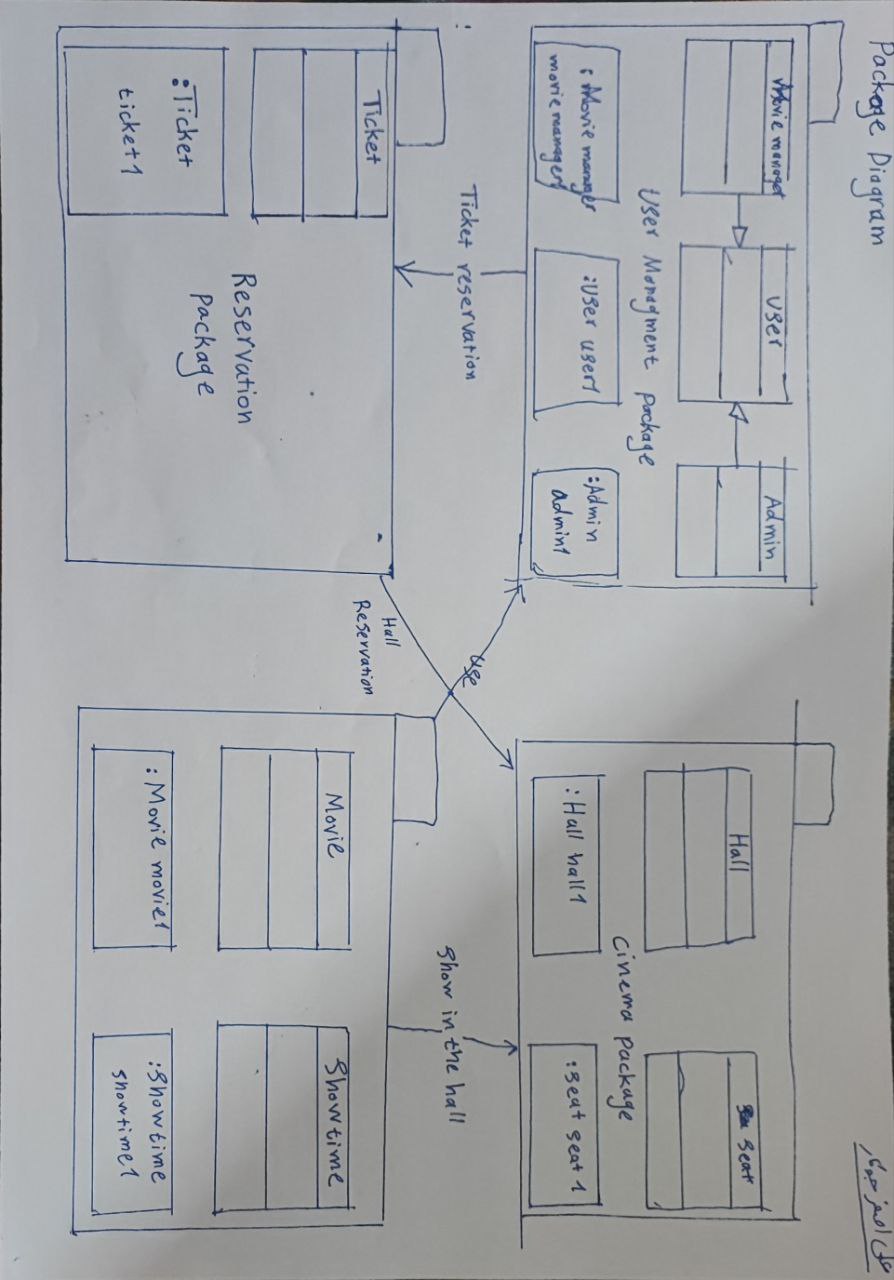 Package Diagram
علی اصغر جوکار
Movie manager
User
Admin
User Managment package
: Movie manager
movie manager1
:User user1
:Admin
admin1
Hall
Seat
Cinema package
:Hall hall1
:seat seat 1
Ticket reservation
use
Hall
Reservation
Show in the hall
Ticket
:Ticket
ticket1
Reservation
package
Movie
Showtime
: Movie movie1
:Showtime
showtime1